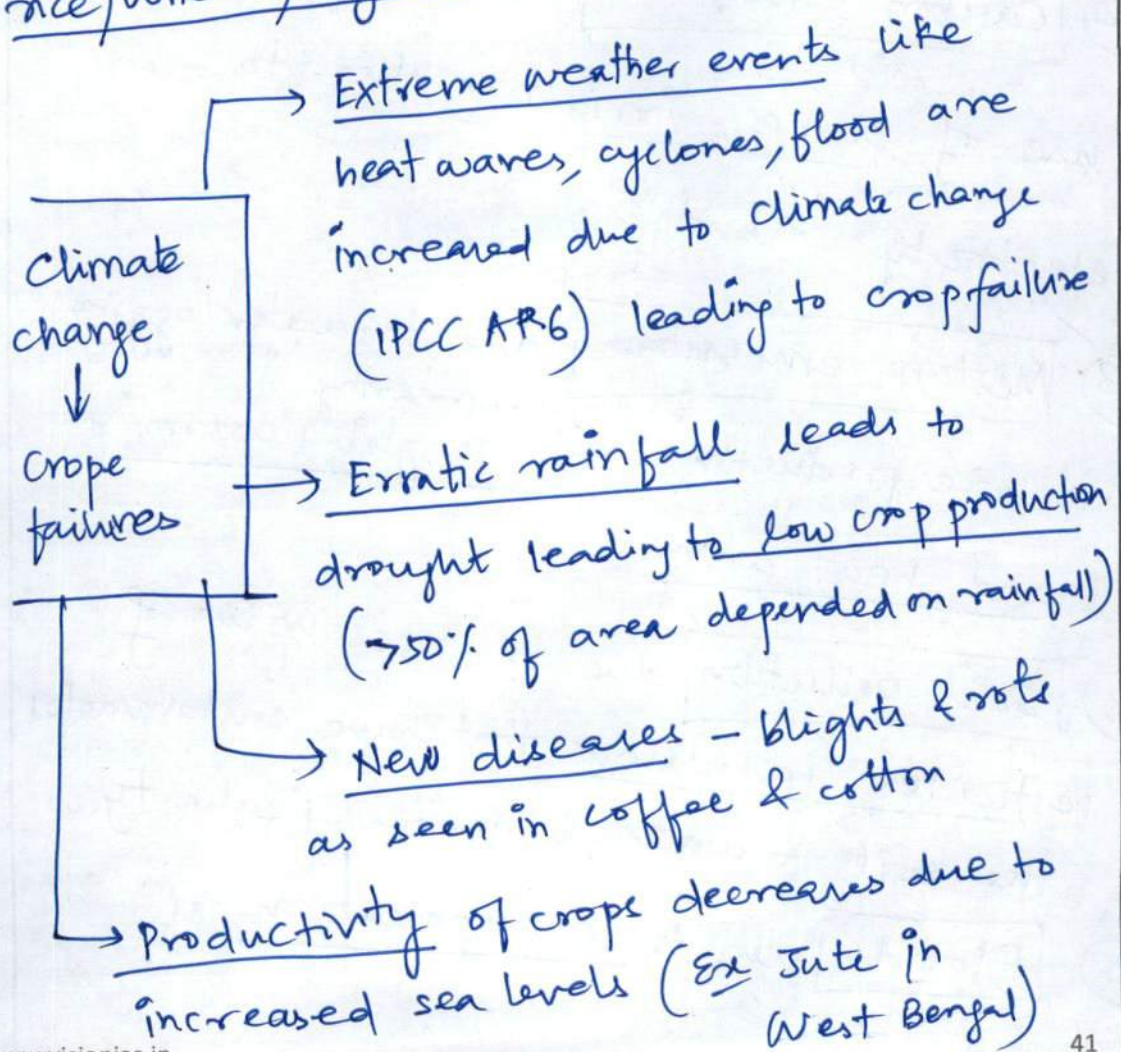 rice,
→ Extreme weather events like
heat waves, cyclones, flood are
increased due to climate change
(IPCC AR6) leading to crop failure
Climate
change
↓
Crope
failures
→ Erratic rainfall leads to
drought leading to low crop production
(>50% of area depended on rainfall)
→ New diseases - blights & rots
as seen in coffee & cotton
→ Productivity of crops decreases due to
increased sea levels (Ex Jute in
West Bengal)
41